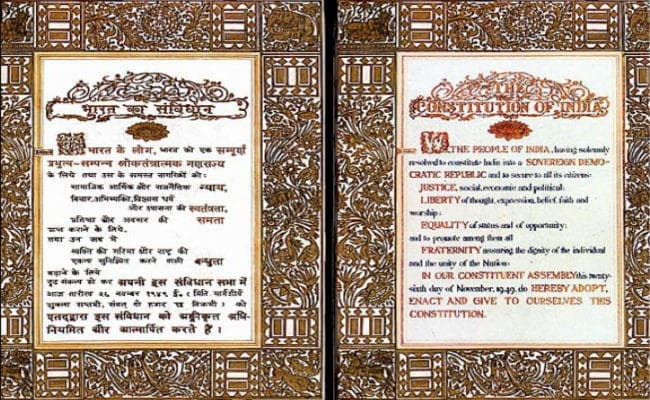 भारत का संविधान
हम भारत के लोग, भारत को एक सम्पूर्ण
प्रभुत्व-सम्पन्न लोकतंत्रात्मक गणराज्य
के लिये तथा उस के समस्त नागरिकों को:
सामाजिक आर्थिक और राजनैतिक न्याय,
विचार, अभिव्यक्ति, विश्वास धर्म
और उपासना की स्वतंत्रता,
प्रतिष्ठा और अवसर की समता
प्राप्त कराने के लिये,
तथा उन सब में
व्यक्ति की गरिमा और राष्ट्र की
एकता सुनिश्चित करने वाली बन्धुता
बढ़ाने के लिये
दृढ संकल्प हो कर अपनी इस संविधान सभा में
आज तारीख २६ नवम्बर १९४९ ई. (मिति मार्गशीर्ष
शुक्ला सप्तमी, संवत् दो हजार छै विक्रमी) को
एतद्द्वारा इस संविधान को अङ्गीकृत अधि-
नियमित और आत्मार्पित करते हैं।
THE
CONSTITUTION OF INDIA
WE, THE PEOPLE OF INDIA, having solemnly
resolved to constitute India into a SOVEREIGN DEMO-
CRATIC REPUBLIC and to secure to all its citizens:
JUSTICE, social, economic and political;
LIBERTY of thought, expression, belief, faith and
worship;
EQUALITY of status and of opportunity;
and to promote among them all
FRATERNITY assuring the dignity of the individual
and the unity of the Nation;
IN OUR CONSTITUENT ASSEMBLY this twenty-
sixth day of November, 1949, do HEREBY ADOPT,
ENACT AND GIVE TO OURSELVES THIS
CONSTITUTION.